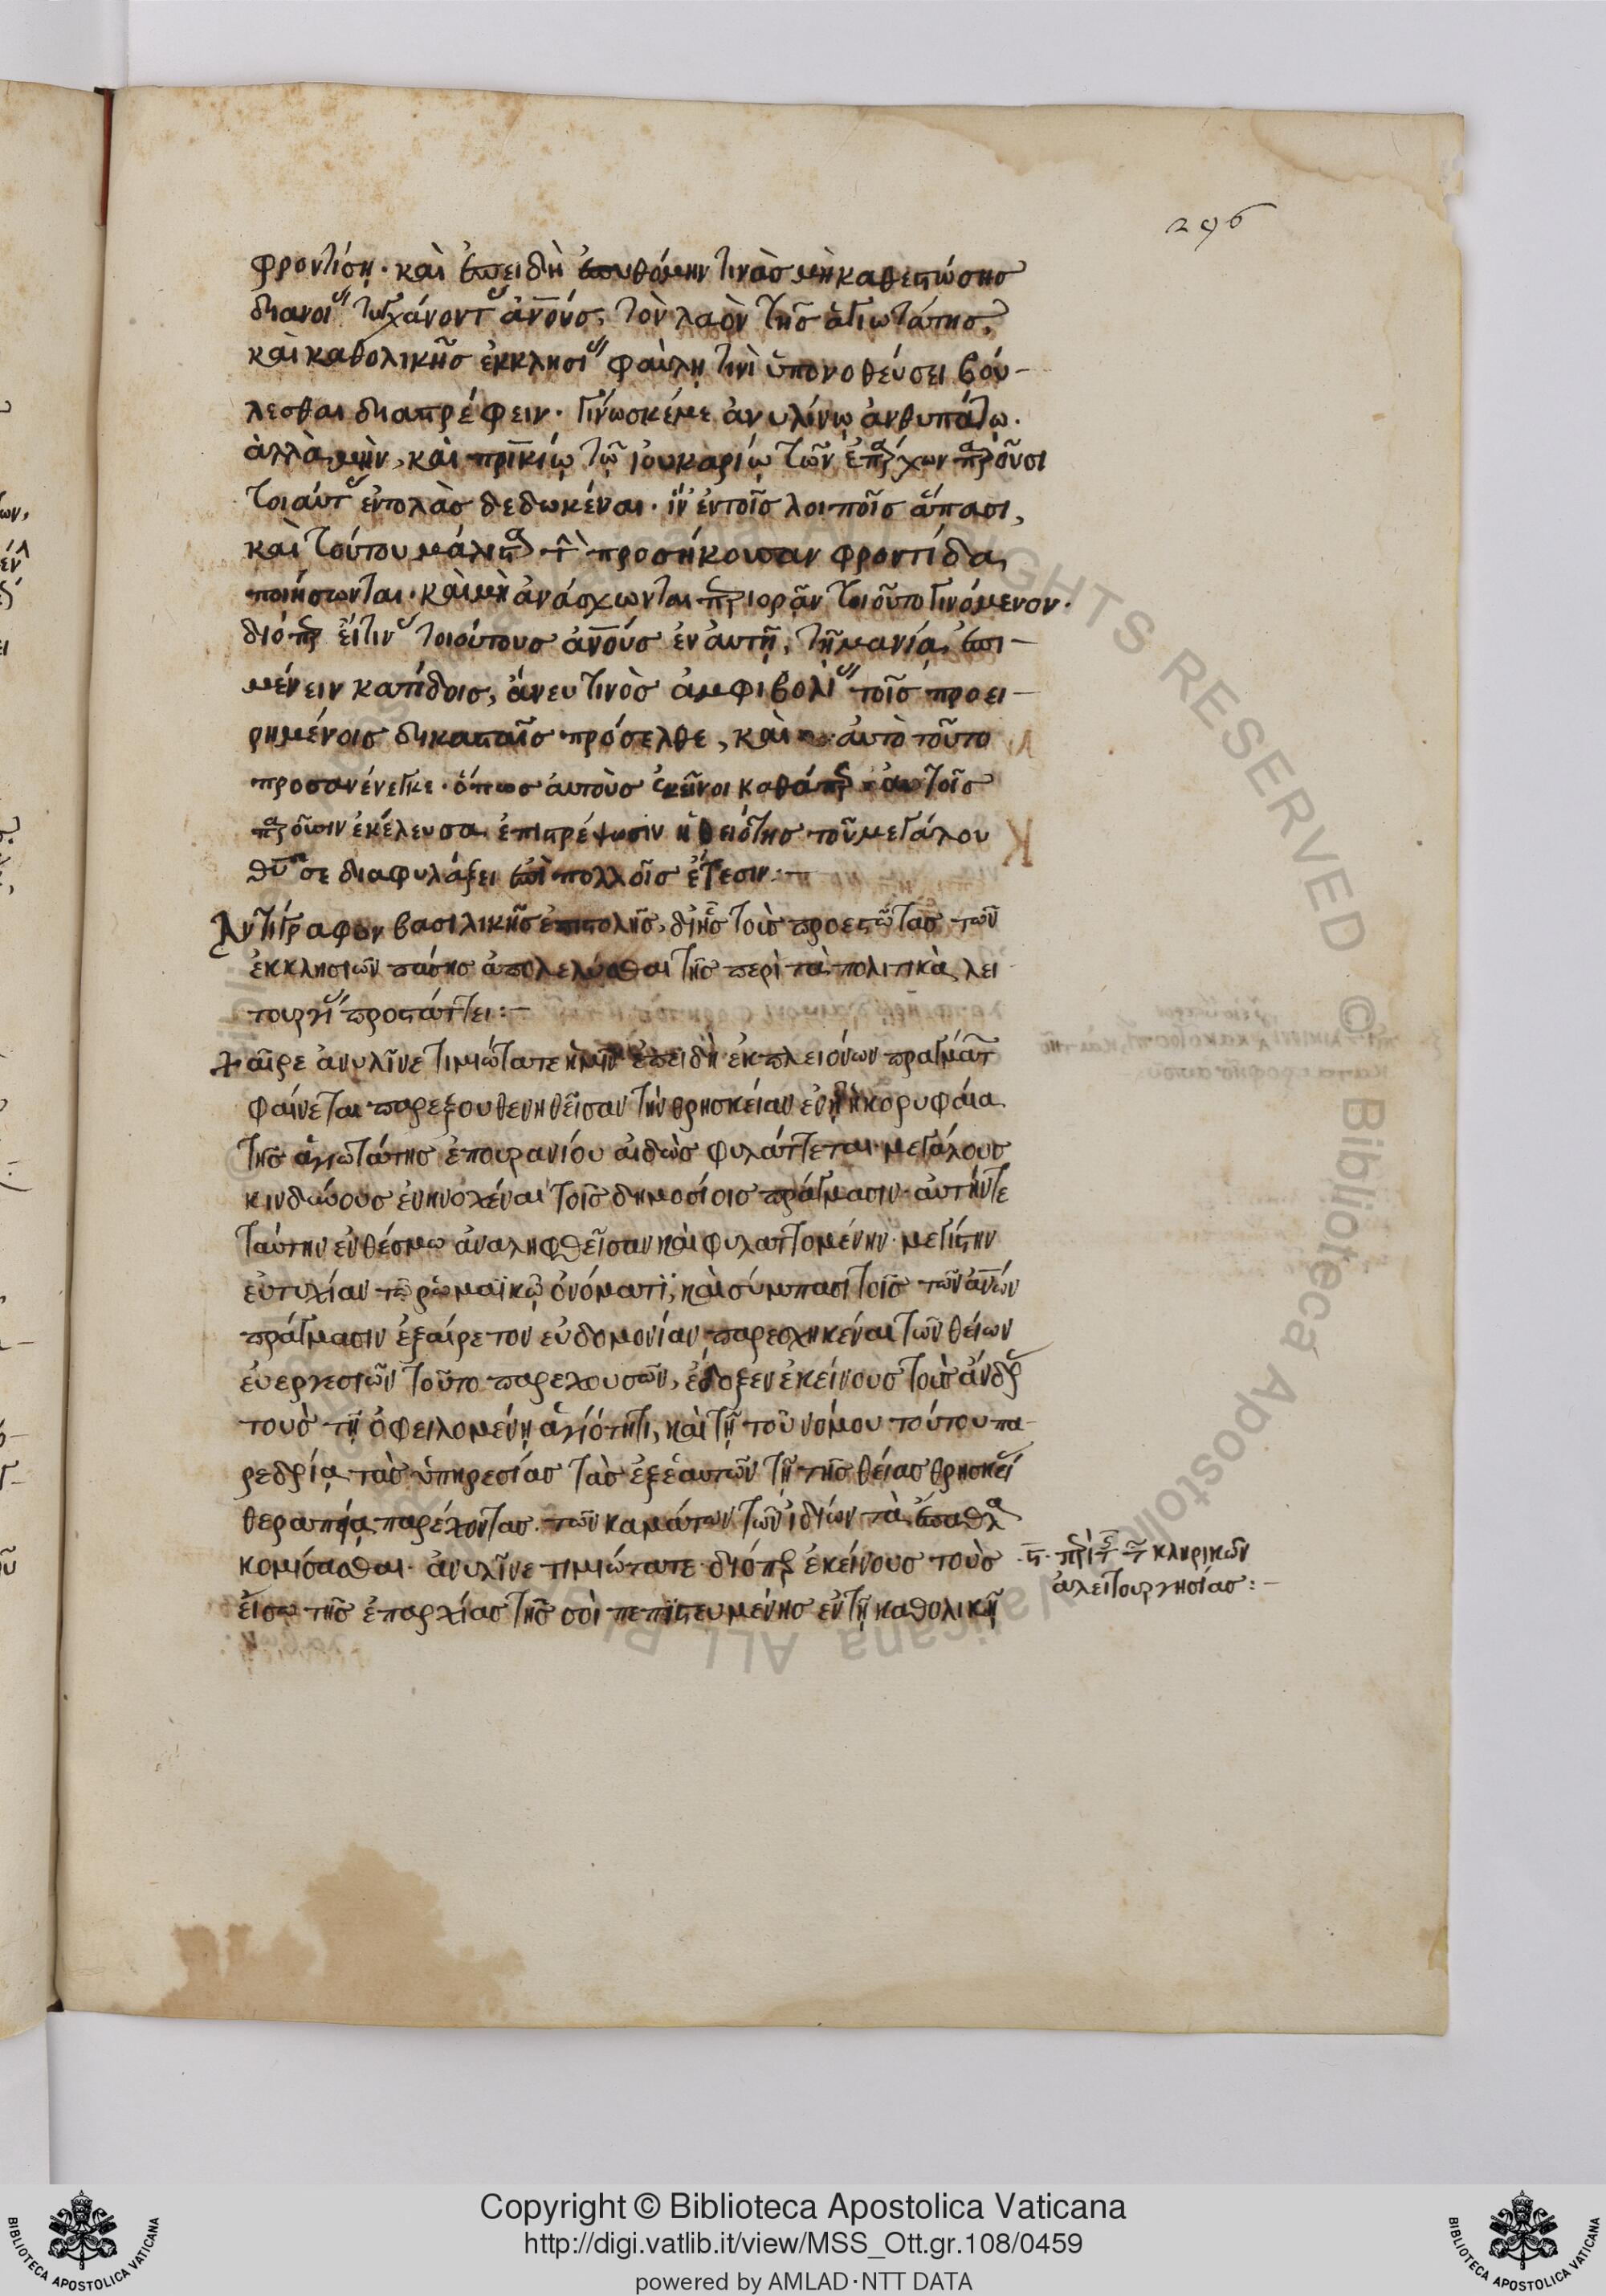 296
φροντίση· καὶ ἐπειδὴ ἐπυθόμην τινὰσ μὴ καθεστώσησ
διανοίας τυγχάνοντας ἀν̅ο̅ύσ, τὸν λαὸν τῆσ ἁγιωτάτησ,
καὶ καθολικῆσ ἐκκλησίας φαύλη τινὶ ὑπονοθεύσει βού-
λεσθαι διαστρέφειν· γίνωσκέ με ἀνυλίνῳ ἀνθυπάτω.
ἀλλὰ μὴν, καὶ πρ̅ικίῳ τῶ ἰουκαρίῳ τῶν ἐπάρχων παροῦσι
τοιαύτας ἐντολὰσ δεδωκέναι· ἵν' ἐν τοῖσ λοιποῖσ ἅπασι,
καὶ τούτου μάλιστα τὴν προσήκουσαν φροντίδα
ποιήσωνται· καὶ μὴ ἀνάσχωνται περιορᾶν τοιοῦτο γινόμενον·
διόπερ εἴ τινας τοιούτουσ ἀν̅ο̅ύσ ἐν αὐτῆ, τῆ μανία ἐπι-
μένειν κατίδοισ, ἄνευ τινὸσ ἀμφιβολίας τοῖσ προει-
ρημένοισ δικασταῖσ πρόσελθε, καὶ αὐτὸ τοῦτο
προσανένεγκε· ὅπωσ αὐτοὺσ ἐκεῖνοι καθάπερ αὐτοῖσ
παροῦσιν ἐκέλευσα ἐπιστρέψωσιν ἡ θειότησ τοῦ μεγάλου
θ̅υ̅ σε διαφυλάξει ἐπὶ πολλοῖσ ἔτεσιν:-
Ἀντίγραφον βασιλικῆσ ἐπιστολῆσ, δι' ἧσ τοὺσ προεστῶτασ τῶν
ἐκκλησιῶν πάσησ ἀπολελύσθαι τῆσ περὶ τὰ πολιτικὰ λει
τουργίας προστάττει:-
Χαῖρε ἀνυλῖνε τιμιώτατε ἡμῖν ἐπειδὴ ἐκ πλειόνων πραγμάτ
φαίνεται παρεξουθενηθεῖσαν τὴν θρησκείαν ἐν ᾗ ἡ κορυφαία
τῆσ ἁγιωτάτησ ἐπουρανίου αἰδὼσ φυλάττεται μεγάλουσ
κινδύνουσ ἐνηνοχέναι τοῖσ δημοσίοισ πράγμασιν· αὐτήν τε
ταύτην ἐνθέσμω ἀναληφθεῖσαν καὶ φυλαττομένην· μεγίστην
εὐτυχίαν τῶ ῥωμαϊκῶ ὀνόματι, καὶ σύμπασι τοῖσ τῶν ἀν̅ω̅ν
πράγμασιν ἐξαίρετον εὐδομονίαν παρεσχηκέναι τῶν θείων
εὐεργεσιῶν τοῦτο παρεχουσῶν, ἔδοξεν ἐκείνουσ τοὺσ ἄνδρ
τοὺσ τῆ ὀφειλομένη ἁγιότητι, καὶ τῆ τοῦ νόμου τούτου πα-
ρεδρία τὰσ ὑπηρεσίασ τὰσ ἐξ ἑαυτῶν τῆ τῆσ θείασ θρησκεί
θεραπεία παρέχοντασ. τῶν καμάτων τῶν ἰδίων τὰ ἔπαθλα
κομίσασθαι· ἀνυλῖνε τιμιώτατε διόπερ ἐκείνουσ τοὺσ
εἴσω τῆσ ἐπαρχίασ τῆσ σοὶ πεπιστευμένησ ἐν τῆ καθολικῆ
ϛ. περὶ τῆς τῶν κληρικῶν
ἀλειτουργησίασ:-
Copyright © Biblioteca Apostolica Vaticana
http://digi.vatlib.it/view/MSS_Ott.gr.108/0459
powered by AMLAD·NTT DATA